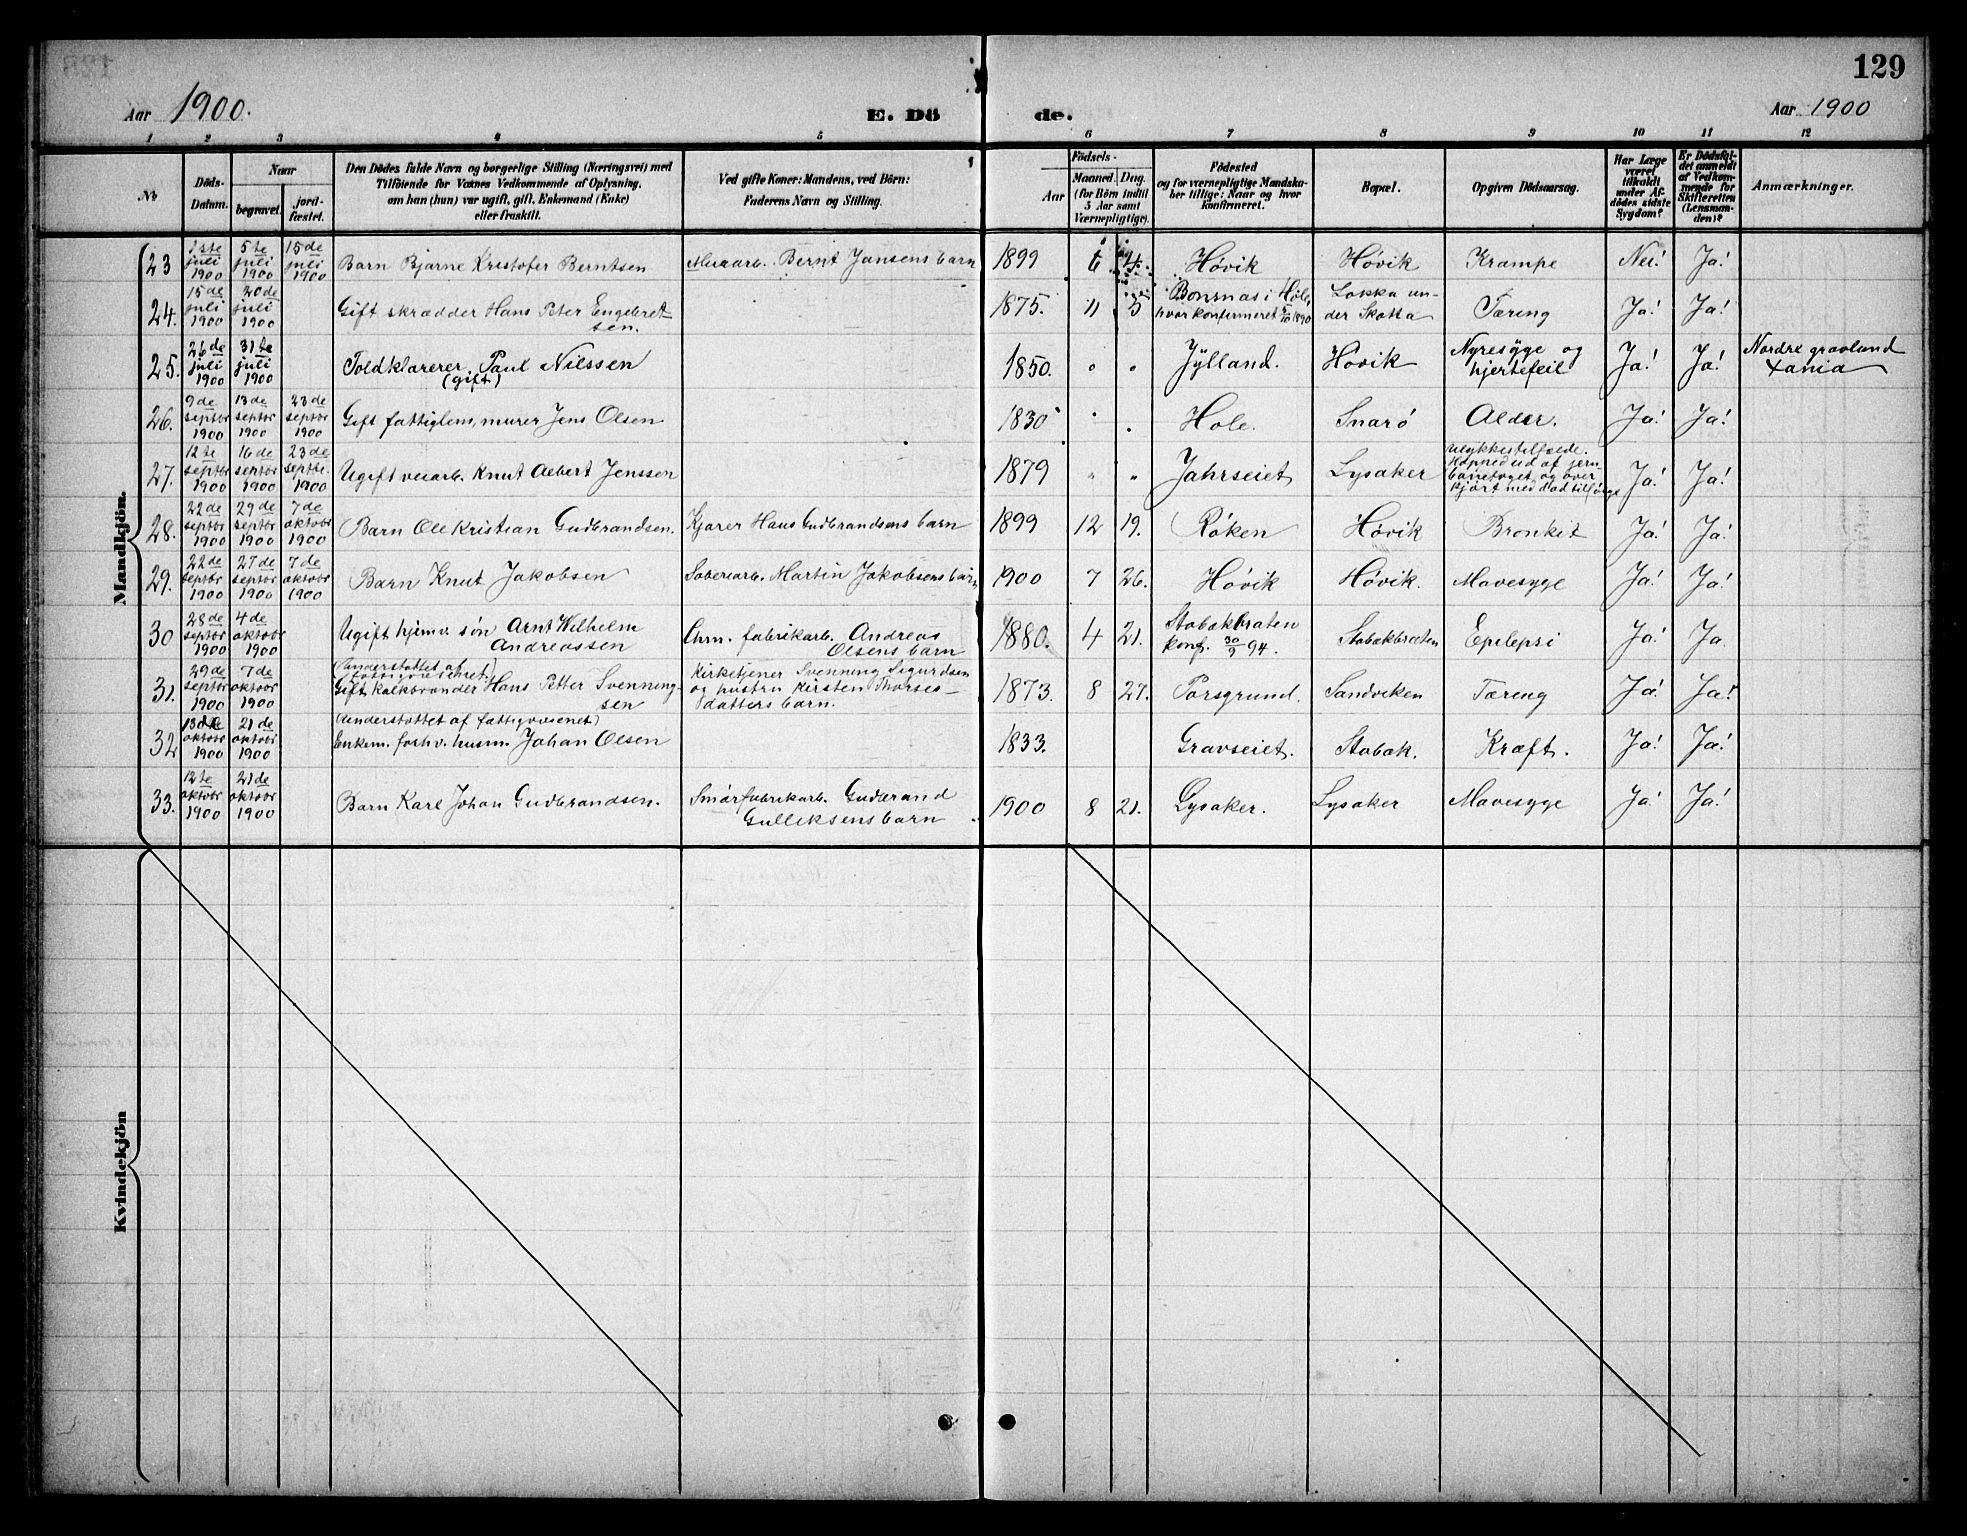 129
Aar 1900.
E. Dö
de.
Aar 1900
1 2 3 4 5 6 7 8 9 10 11 12
No
Döds-Datum.
Naar
begravet.
jord-fæstet.
Den Dödes fulde Navn og borgerlige Stilling (Næringsvei) med
Tilföiende for Voxnes Vedkommende af Oplysning,
om han (hun) var ugift, gift, Enkemand (Enke)
eller fraskilt.
Ved gifte Koner: Mandens, ved Börn:
Faderens Navn og Stilling.
Födsels-
Aar
Maaned. Dag.
(for Börn indtil
5 Aar samt
Værnepligtige).
Födested
og for værnepligtige Mandska-
ber tillige: Naar og hvor
konfirmeret.
Bopæl.
Opgiven Dödsaarsag.
Har Læge
været
tilkaldt
under Af-
dödes sidste
Sygdom?
Er Dödsfal-
det anmeldt
af Vedkom-
mende for
Skifteretten
(Lensman-
den)?
Anmærkninger.
Mandkjön.
23 1ste juli 1900 5te juli 1900 15de juli 1900 Barn Bjarne Kristofer Berntsen Murarb. Bernt Jansens barn 1899 6 4. Høvik Høvik Krampe Nei! Ja!
24. 15de juli 1900 20de juli 1900 Gift skrædder Hans Peter Engebret-
sen. 1875. 11 5 Bonsnæs i Hole,
hvor konfirmeret 5/10 1890 Løkka un-
der Skotta Tæring Ja! Ja!
25. 26de juli 1900 31te juli 1900 Toldklarerer Paul Nilssen
(gift) 1850. " " Jylland. Høvik Nyresyge og
hjertefeil Ja! Ja! Nordre gravlund
Xania
26. 9de septbr 1900 13de septbr 1900 23de septbr 1900 Gift fattiglem, murer Jens Olsen 1830 " " Hole. Snarø Alder. Ja! Ja!
27. 12te septbr 1900 16de septbr 1900 23de septbr. 1900 Ugift veiarb. Knut Albert Jenssen 1879 " " Jahrseiet Lysaker Ulykkestilfælde.
af jern-
banetoget og over-
kjørt med død tilfølge Ja! Ja!
28. 22de septbr 1900 29de septbr 1900 7de oktobr 1900 Barn Ole Kristian Gudbrandsen. Kjører Hans Gudbrandsens barn 1899 12 19. Røken Høvik Bronkit Ja! Ja!
29. 22de septbr 1900 27de septbr 1900 7de oktobr 1900 Barn Knut Jakobsen Martin Jakobsens barn 1900 7 26. Høvik Høvik. Mavesyge Ja! Ja!
30 28de septbr 1900 4de oktobr 1900 Ugift hjemv. søn Arnt Wilhelm
Andreassen Chm. fabrikarb. Andreas
Olsens barn 1880. 4 21. Stabækbraten
konf. 30/9 94. Stabækbraten Epilepsi Ja! Ja
31. 29de septbr 1900 7de oktobr 1900 (understøttet af
fattigvæsenet)
Gift kalkbrænder Hans Petter Svenning-
sen Kirketjener Svenning Sigurdsen
og hustru Kirsten Thorses-
datters barn. 1873. 8 27. Porsgrund. Sandviken Tæring Ja! Ja!
32 13de oktobr 1900 21de oktobr 1900 (understøttet af fattigvæsenet)
Enkem. forhv. husm. Johan Olsen 1833. Gravseiet. Stabæk. Kræft. Ja! Ja!
33. 12te oktobr 1900 21de oktobr 1900 Barn Karl Johan Gudbrandsen. Smørfabrikarb. Gudbrand
Gulliksens barn 1900 8 21. Lysaker. Lysaker Mavesyge Ja! Ja!
Kvindekjön